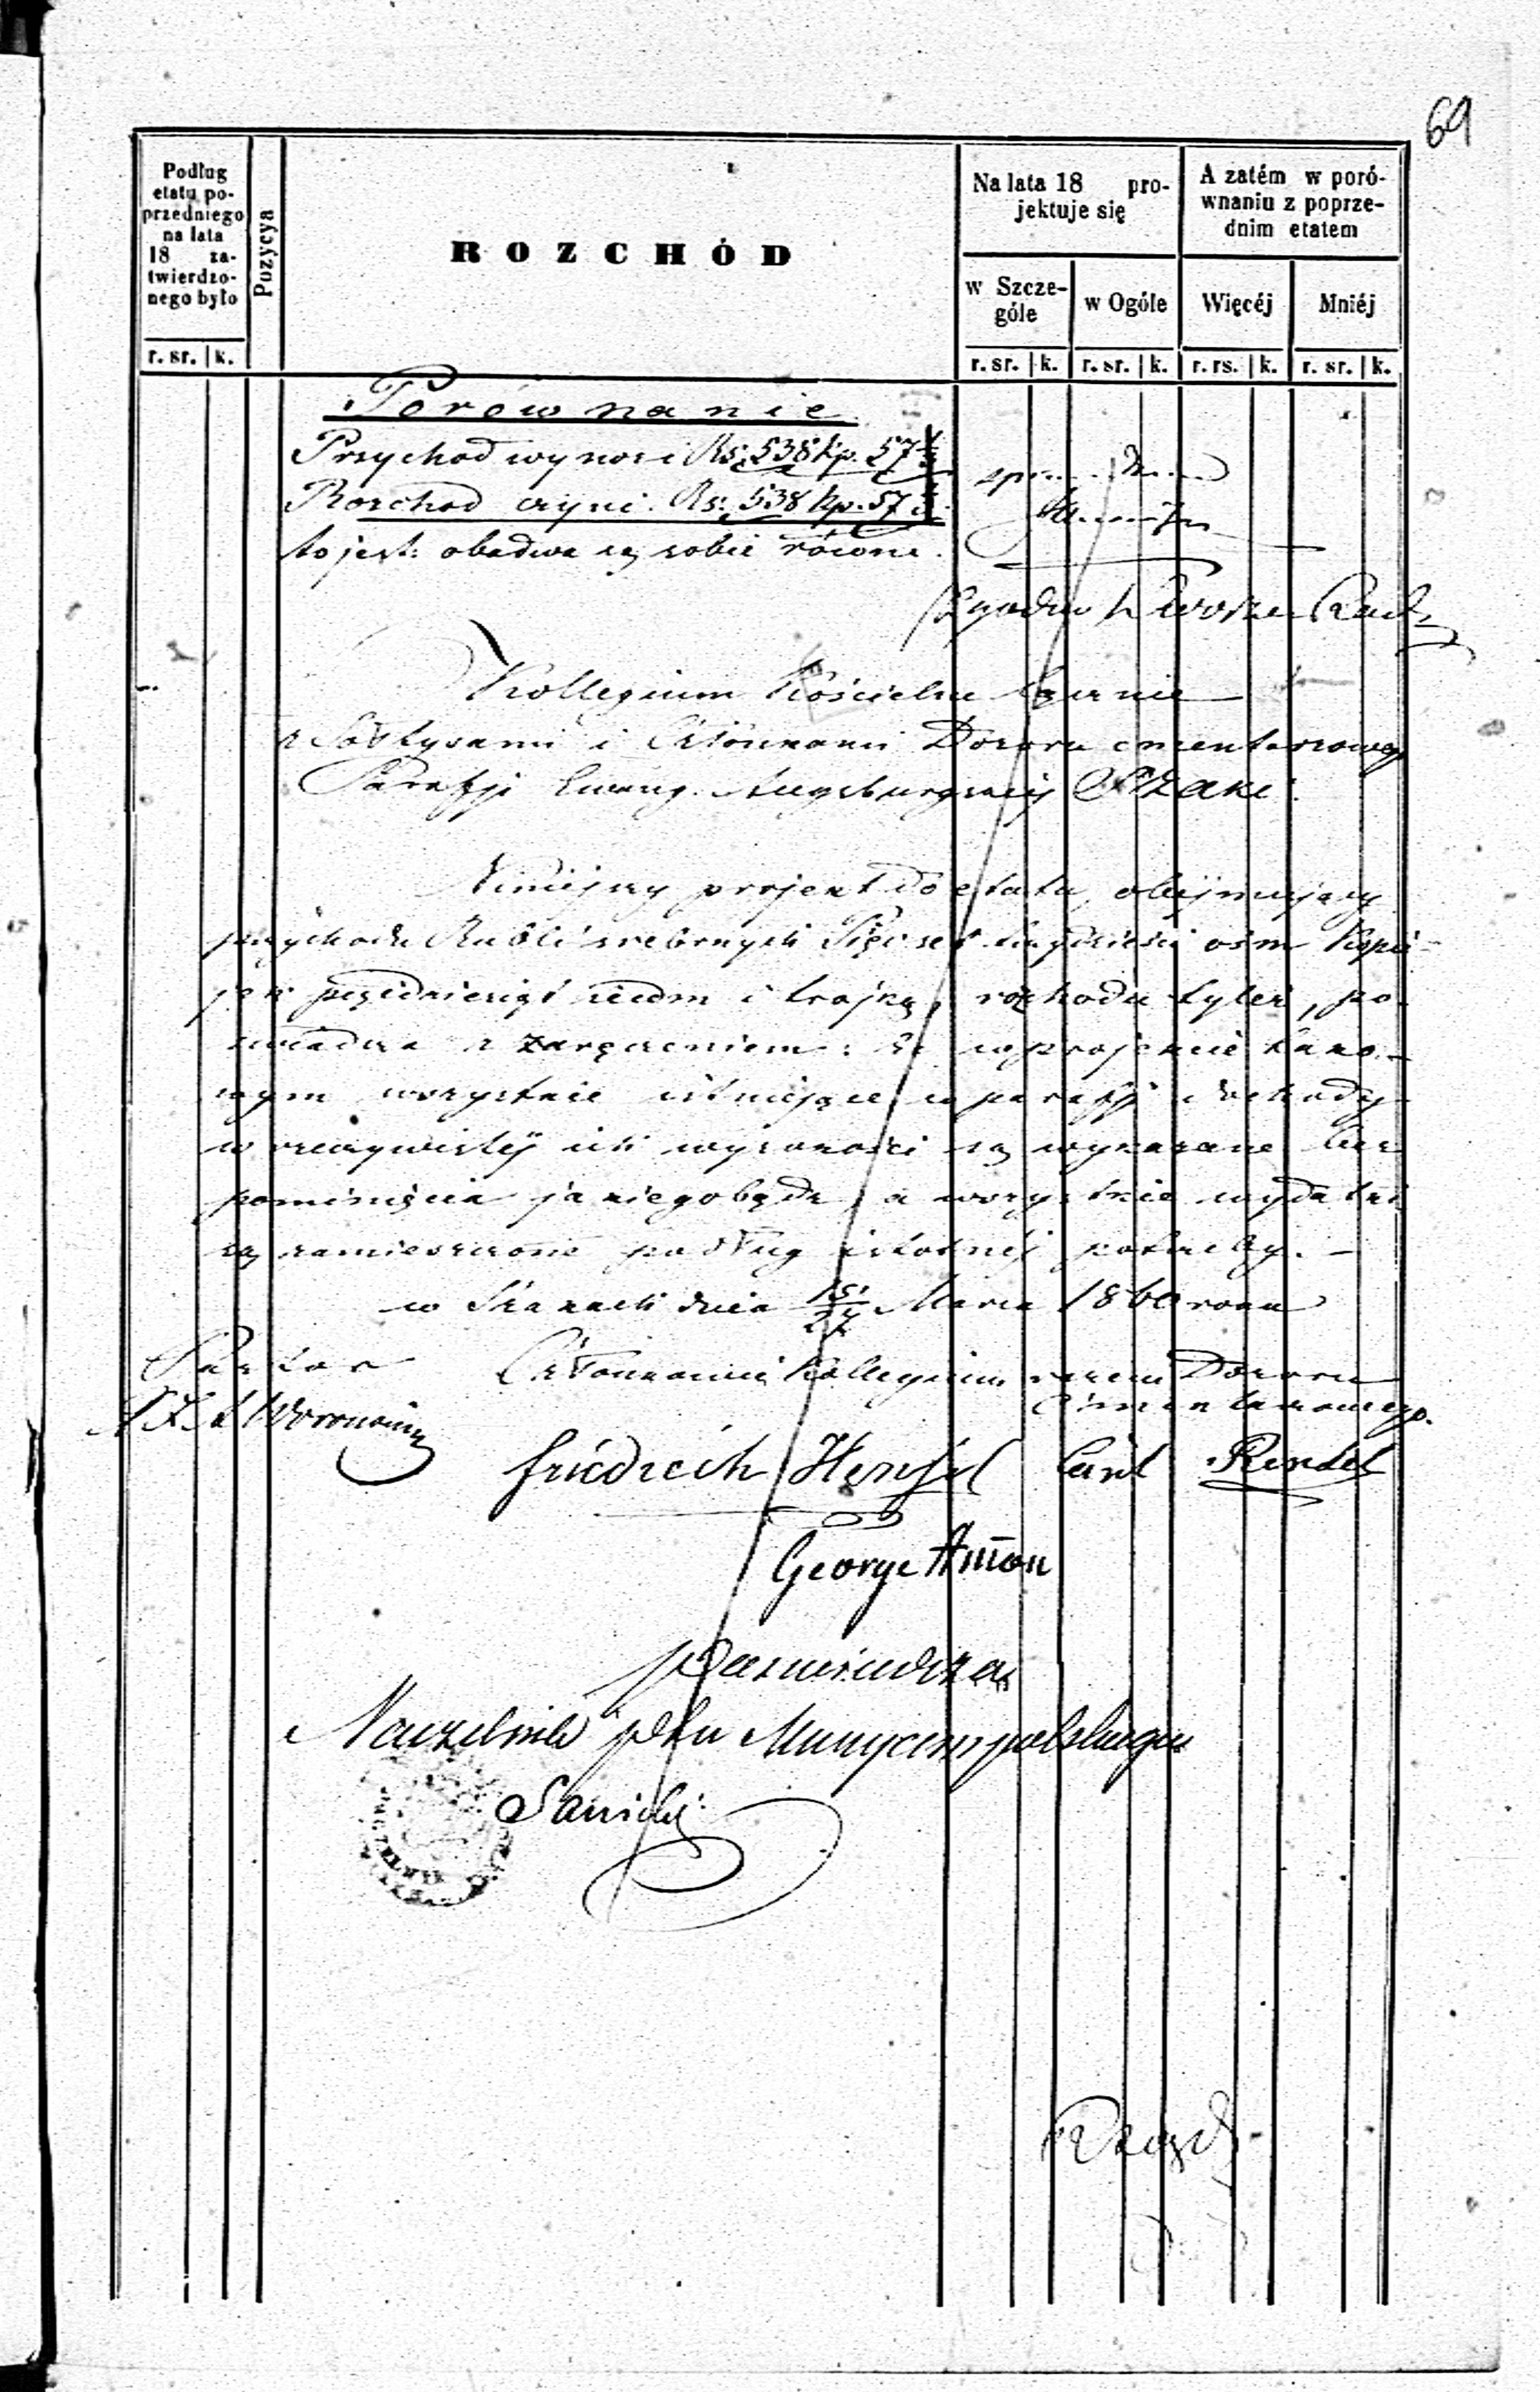 69
Podług etatu po-przedniego na lata 18 za-twierdzo-nego było
Pozycya
ROZCHÓD
Na lata 18 pro-jektuje się
A zatém w poró-wnaniu z poprze-dnim etatem
w Szcze-góle
w Ogóle
Więcéj
Mniéj
r. sr. k.
r. sr. k. r. sr. k. r. rs. k. r. sr. k.
Porównanie
Przychod wynosi Rs: 538 kp. 57
Rozchod czyni. Rs: 538 kp. 57
to jest: obadwa są sobie równe.
Kollegium Kościelne łącznie
z Sołtysami i Członkami Dozoru cmentarzowego
Parafji Ewang. Augsburgskiej
Niniejszy projekt do etatu, obejmujący
przychodu Rubli srebrnych Pięćset trzydzieści ośm Kopie-
jek pięćdziesiąt siedm i trojkę, rozchodu tyleż, po-
świadcza z zaręczeniem: że w projekcie tako-
wym wszystkie istniejące w parafji dochody
w rzeczywistéj ich wysokości są wykazane bez
pominięcia jakiegobądź, a wszystkie wydatki
są zamieszczone podług istotnéj potrzeby. –
w dnia 15/27 Marca 1860 roku
Pastor Członkowie Kollegium razem Dozoru
Cmentarzowego.
Friedrich Henschel Carl Rendel
George Amon
Poswiadcza
Naczelnik Ptu